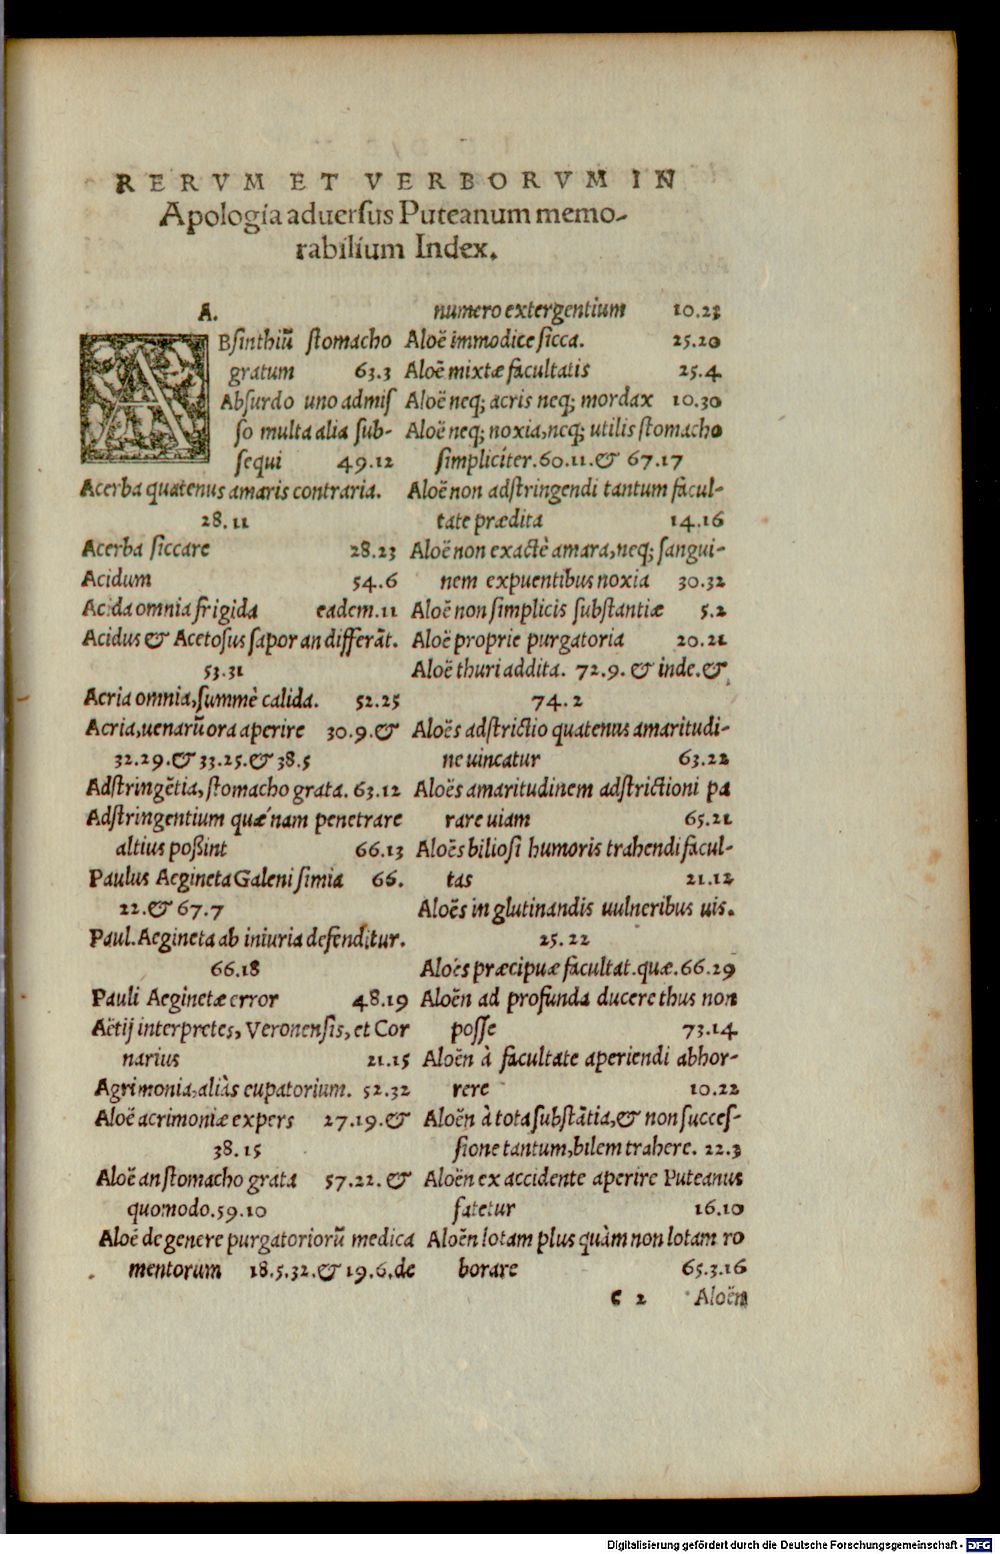 RERVM ET VERBORVM IN
Apologia aduersus Puteanum memo-
rabilium Index.
A.
ABsinthiũ stomacho
gratum 63.3
Absurdo uno admis
so multa alia sub-
sequi 49.12
Acerba quatenus amaris contraria.
28.11
Acerba siccare 28.23
Acidum 54.6
Acida omnia frigida eadem.11
Acidus & Acetosus sapor an differãt.
53.31
Acria omnia, summè calida. 52.25
Acria, uenarũ ora aperire 30.9.&
32.29.& 33.25.& 38.5
Adstringẽtia, stomacho grata. 63.12
Adstringentium quænam penetrare
altius poßint 66.13
Paulus Aegineta Galeni simia 66.
22.& 67.7
Paul. Aegineta ab iniuria defenditur.
66.18
Pauli Aeginetæ error 48.19
Aëtij interpretes, Veronensis, et Cor
narius 21.15
Agrimonia, aliàs eupatorium. 52.32
Aloë acrimoniæ expers 27.19.&
38.15
Aloë an stomacho grata 57.22.&
quomodo.59.10
Aloë de genere purgatoriorũ medica
mentorum 18.5.32.& 19.6.de
numero extergentium 10.23
Aloë immodice sicca. 25.20
Aloë mixtæ facultatis 25.4
Aloë neq; acris neq; mordax 10.30
Aloë neq; noxia, neq; utilis stomacho
simpliciter.60.11.& 67.17
Aloë non adstringendi tantum facul-
tate prædita 14.16
Aloë non exactè amara, neq; sangui-
nem expuentibus noxia 30.32
Aloë non simplicis substantiæ 5.2
Aloë proprie purgatoria 20.21
Aloë thuri addita. 72.9.& inde.&
74.2
Aloës adstrictio quatenus amaritudi-
ne uincatur 63.22
Aloës amaritudinem adstrictioni pa
rare uiam 65.21
Aloës biliosi humoris trahendi facul-
tas 21.12
Aloës in glutinandis uulneribus uis.
25.22
Aloës præcipuæ facultat.quæ.66.29
Aloën ad profunda ducere thus non
posse 73.14
Aloën à facultate aperiendi abhor-
rere 10.22
Aloën à tota substãtia, & non succes-
sione tantum, bilem trahere. 22.3
Aloën ex accidente aperire Puteanus
fatetur 16.10
Aloën lotam plus quàm non lotam ro
borare 65.3.16
c 2 Aloën
Digitalisierung gefördert durch die Deutsche Forschungsgemeinschaft - DFG